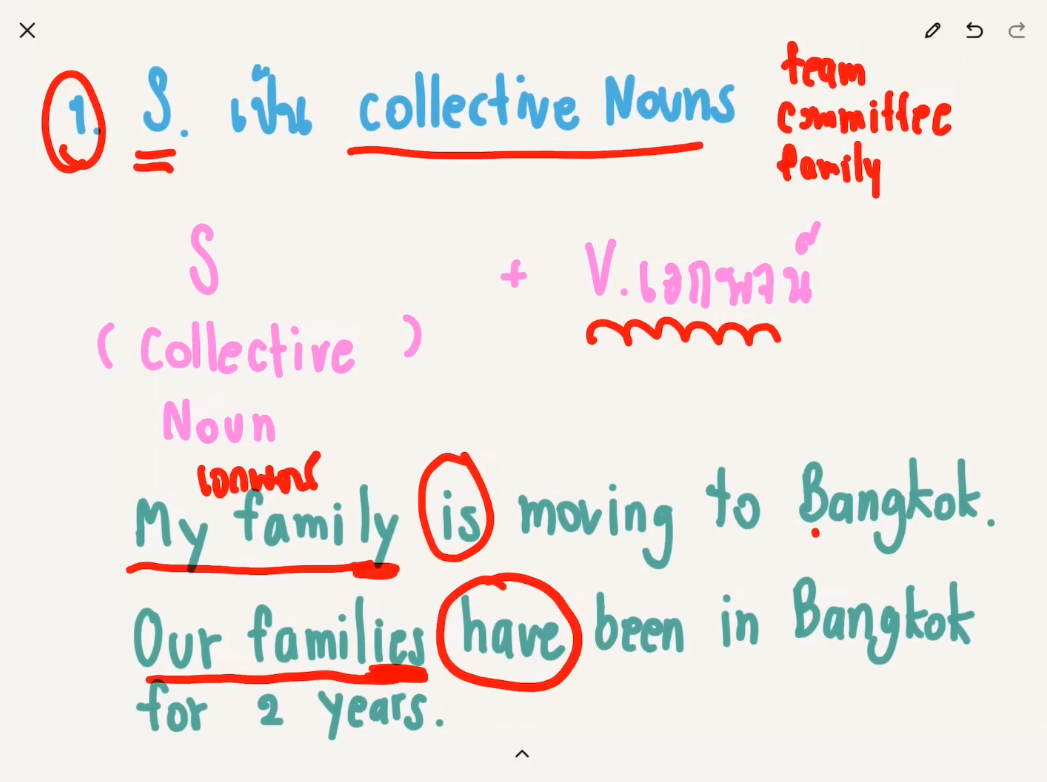 1. S. เป็น collective Nouns
team
committee
family
S + V. เอกพจน์
( Collective )
Noun
เอกพจน์
My family is moving to Bangkok.
Our families have been in Bangkok
for 2 years.